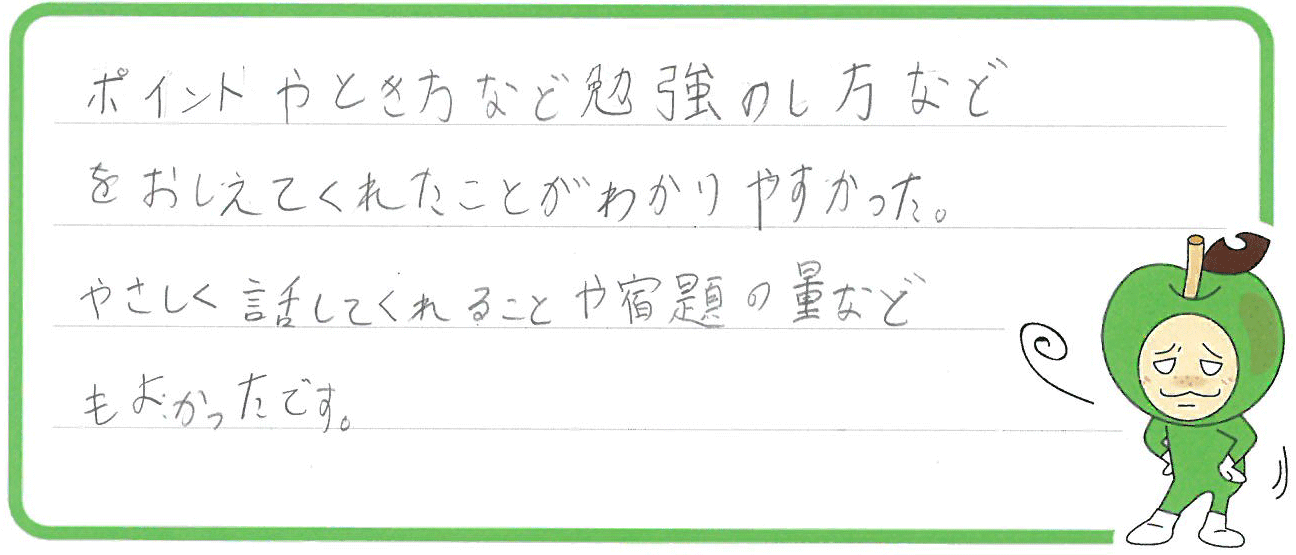 ポイントやとき方など勉強のし方など
をおしえてくれたことがわかりやすかった。
やさしく話してくれることや宿題の量など
もよかったです。